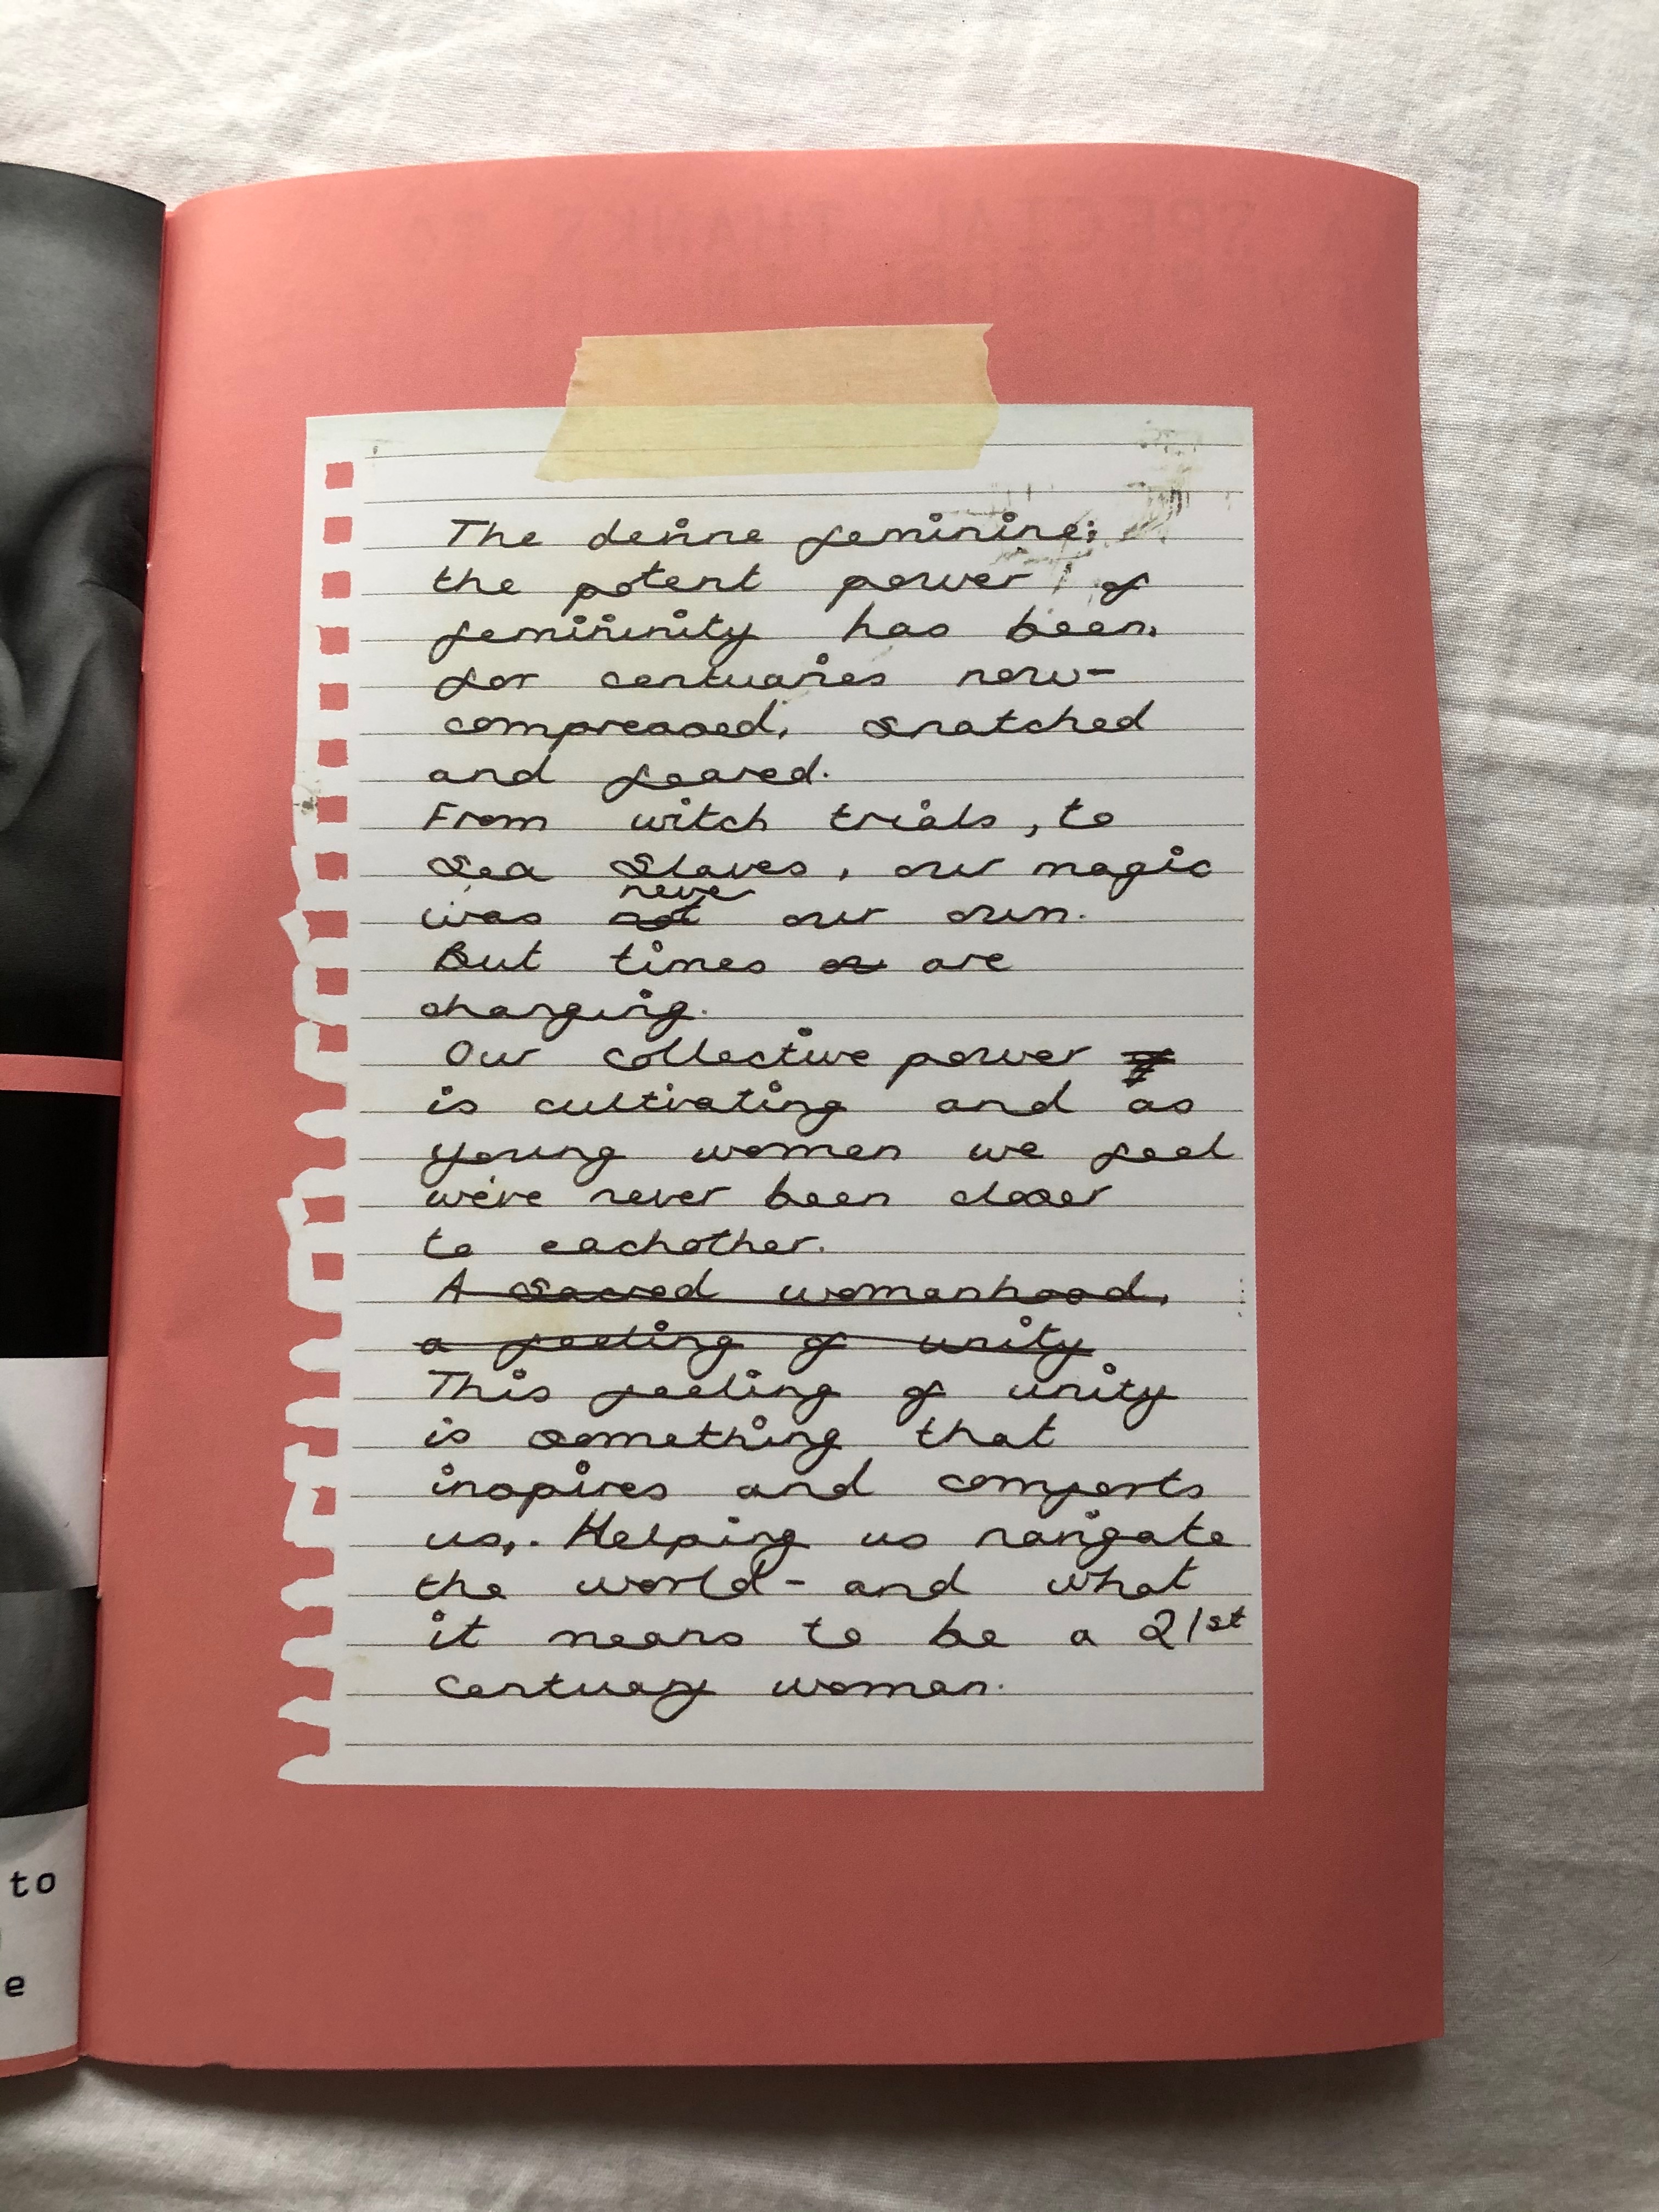 The devine feminine;
the potent power of
femininity has been,
for centuaries now-
compressed, snatched
and feared.
From witch trials, to
Sea Slaves, our magic
never
was not our own.
But times a are
changing.
Our collective power
is cultivating and as
young women we feel
we've never been closer
to eachother.
A sacred womanhood,
a feeling of unity
This feeling of unity
is something that
inspires and comforts
us,. Helping us navigate
the world- and what
it means to be a 21st
Centuary woman.
to
e